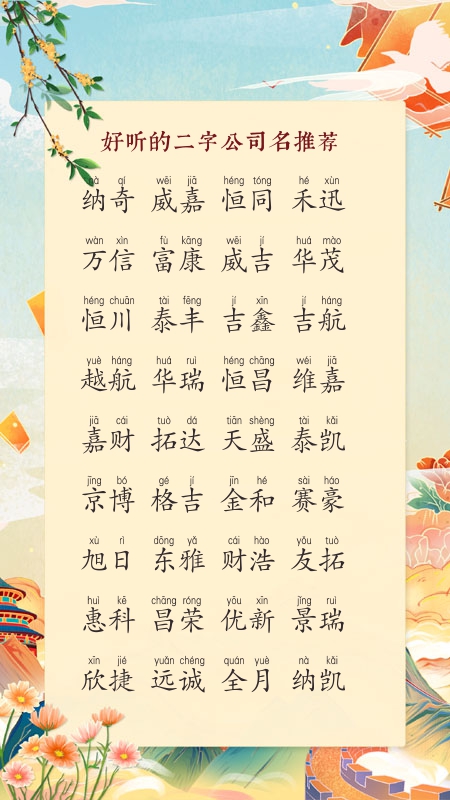 好听的二字公司名推荐
nà qí wēi jiā héng tóng hé xùn
纳奇 威嘉 恒同 禾迅
wàn xìn fù kāng wēi jí huá mào
万信 富康 威吉 华茂
héng chuān tài fēng jí xīn jí háng
恒川 泰丰 吉鑫 吉航
yuè háng huá ruì héng chāng wéi jiā
越航 华瑞 恒昌 维嘉
jiā cái tuò dá tiān shèng tài kǎi
嘉财 拓达 天盛 泰凯
jīng bó gé jí jīn hé sài háo
京博 格吉 金和 赛豪
xù rì dōng yǎ cái hào yǒu tuò
旭日 东雅 财浩 友拓
huì kē chāng róng yōu xīn jǐng ruì
惠科 昌荣 优新 景瑞
xīn jié yuǎn chéng quán yuè nà kǎi
欣捷 远诚 全月 纳凯